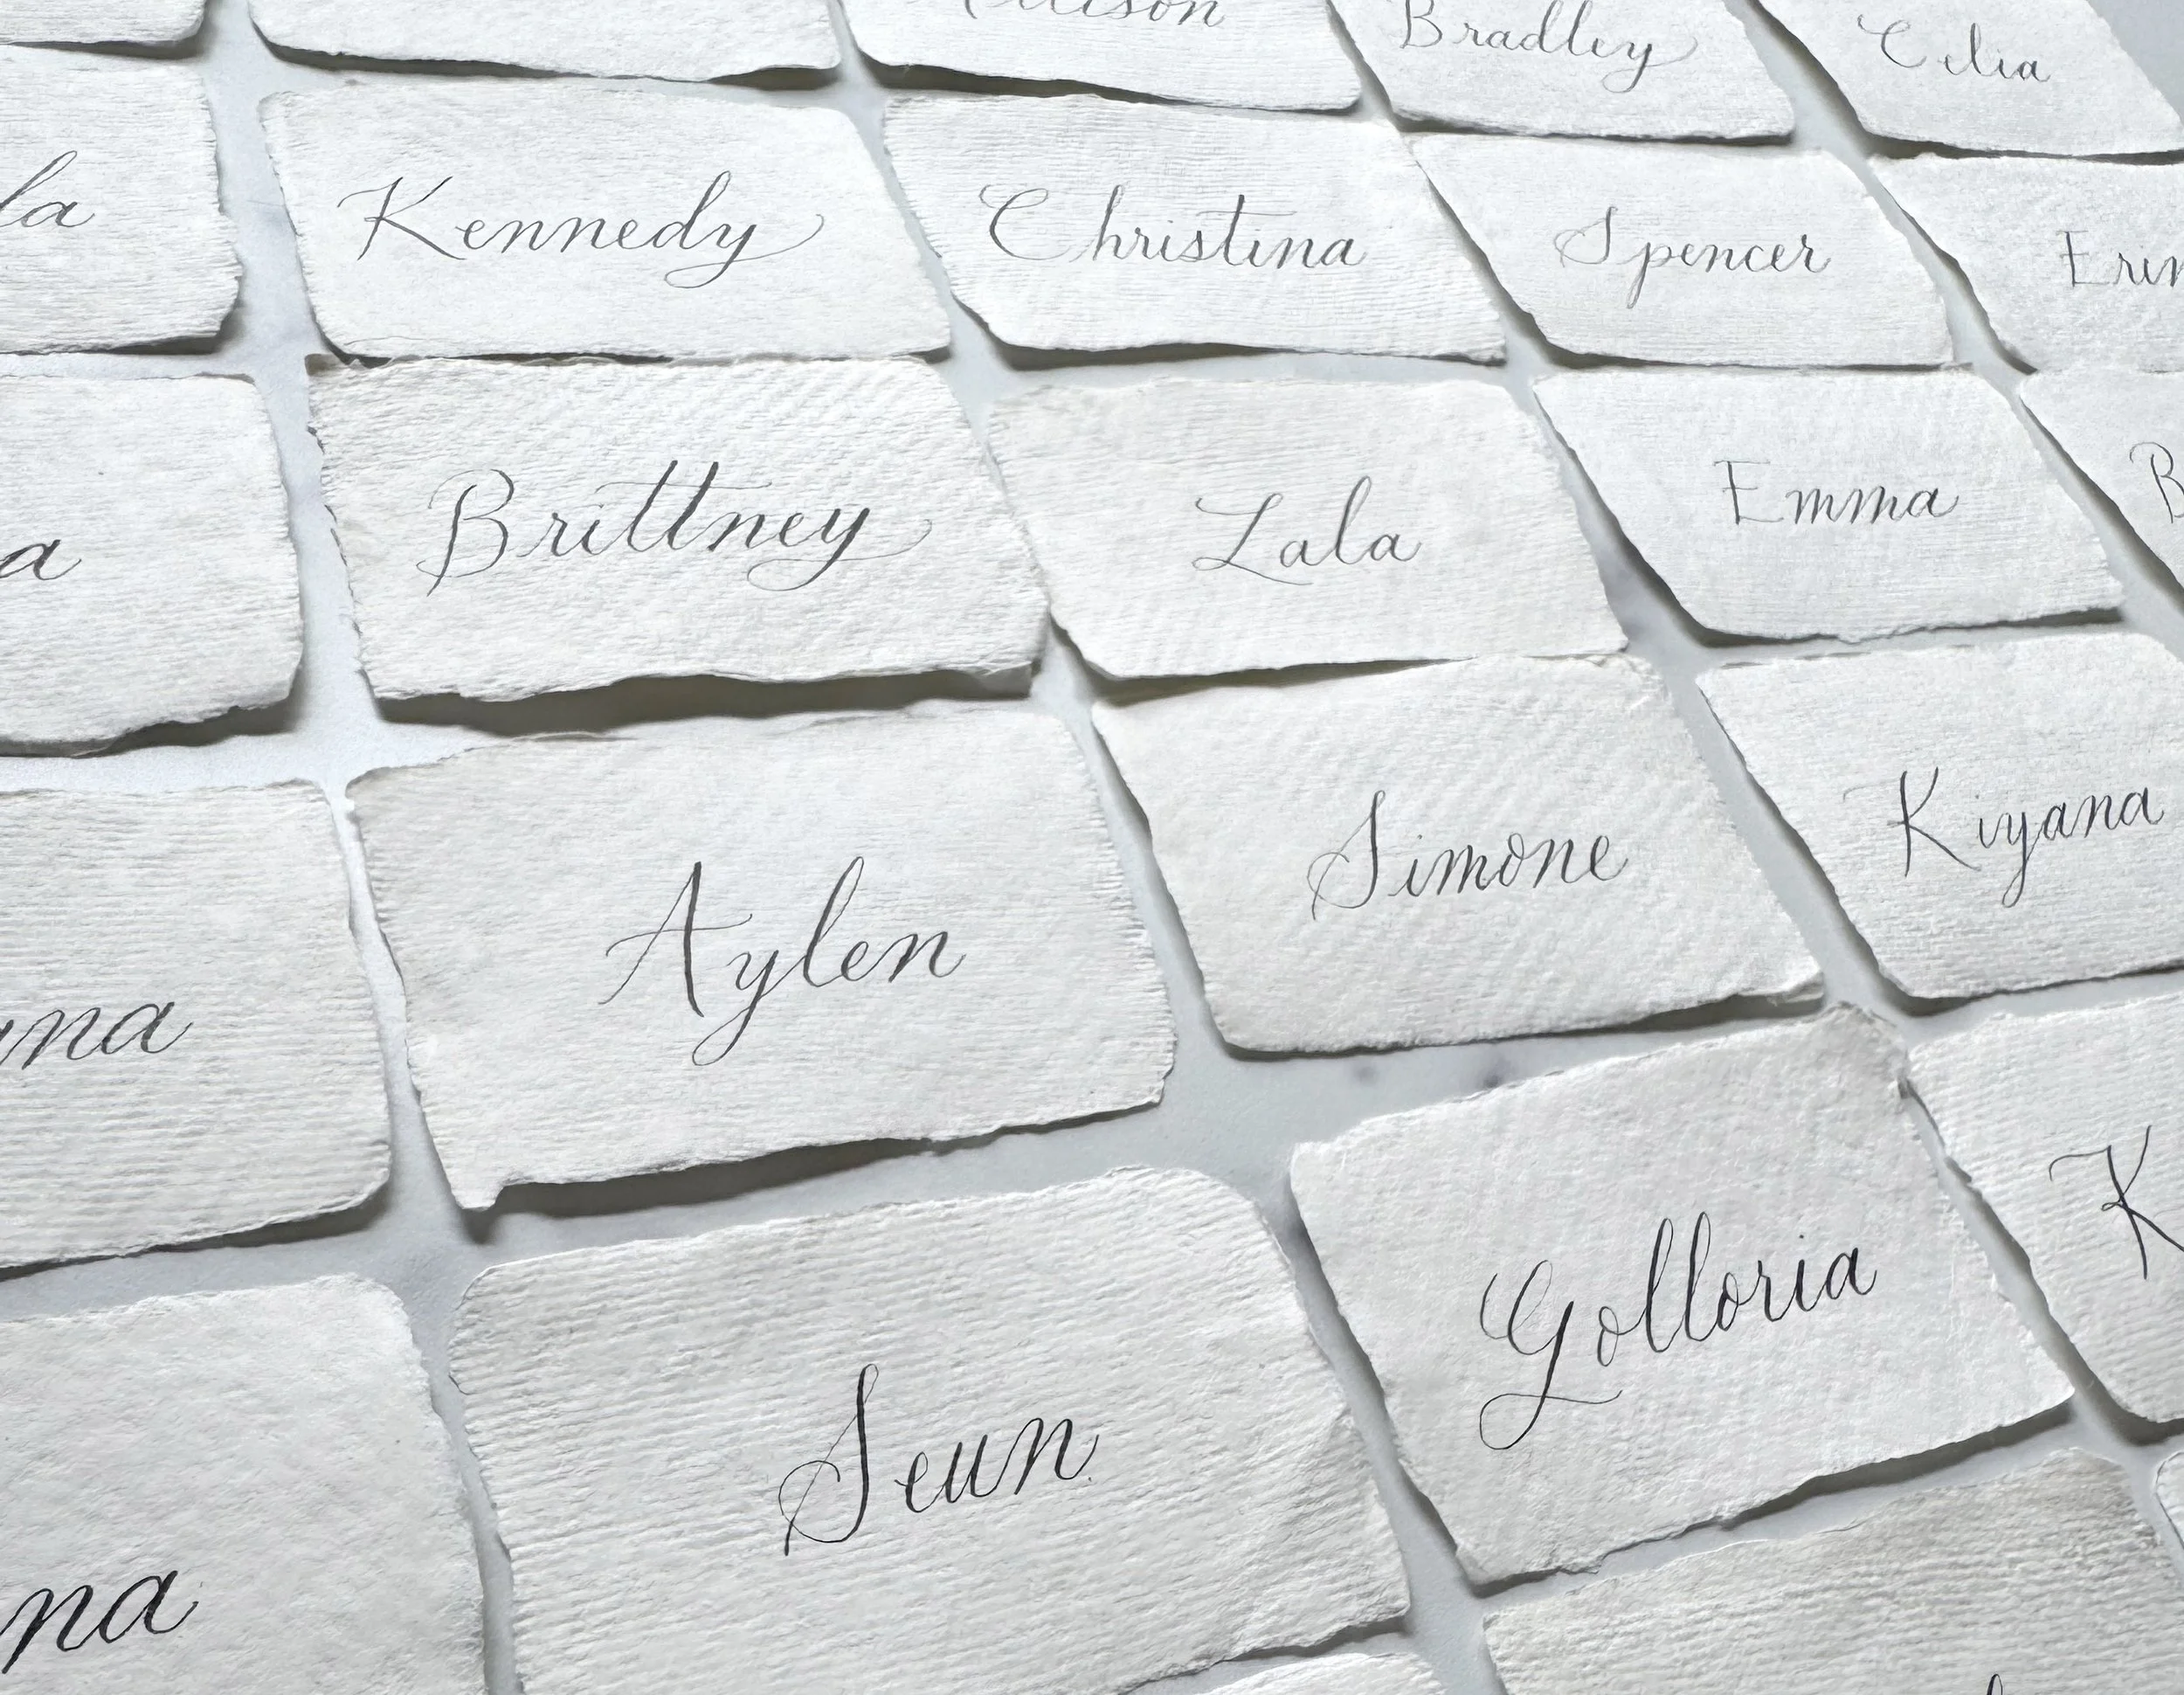 Bradley
Celia
Kennedy
Christina
Spencer
Brittney
Lala
Emma
Aylen
Simone
Kiyana
Golloria
Seun